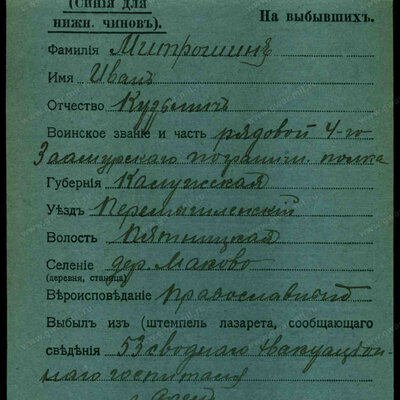 (Синія для
нижн. чиновъ).
На выбывшихъ.
Фамилія Митрошинъ
Имя Иванъ
Отчество Кузьмичъ
Воинское званіе и часть рядовой 4-го
Заамурскаго погранич. полка
Губернія Калужская
Уѣздъ Перемышленскій
Волость Пятницкая
Селеніе дер. Маково
(деревня, станица)
Вѣроисповѣданіе православный
Выбылъ изъ (штемпель лазарета, сообщающаго
свѣдѣнія 53 своднаго эвакуаціон-
наго госпиталя